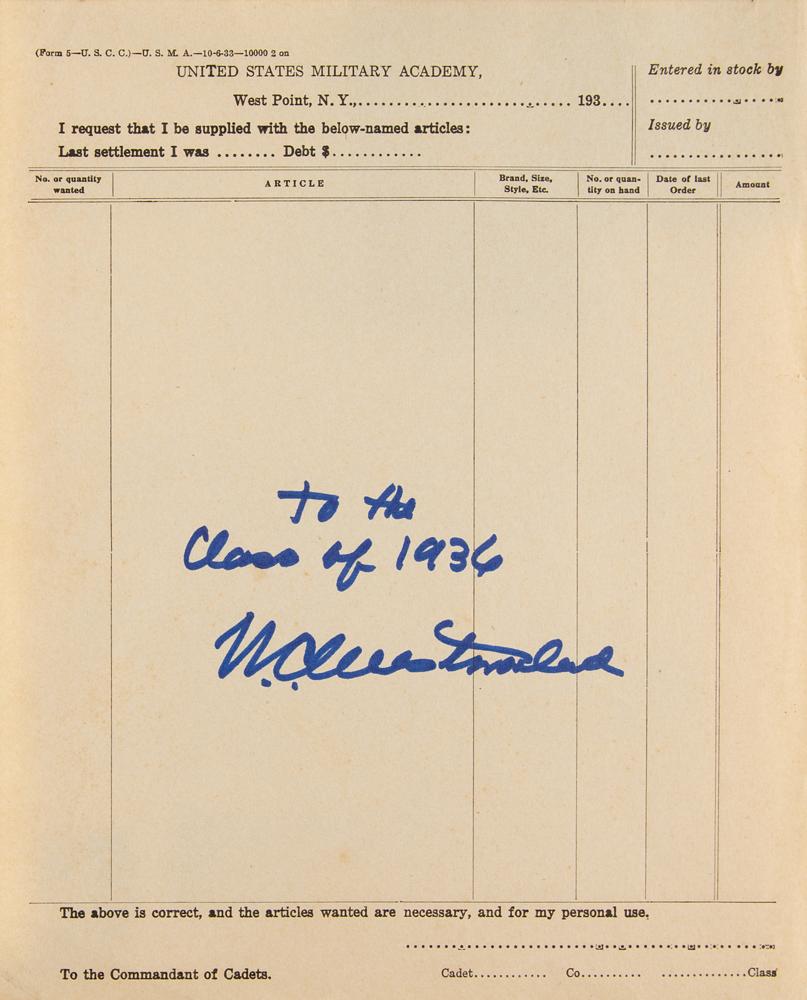 (Form 5—U. S. C. C.)—U. S. M. A.—10-6-33—10000 2 on
UNITED STATES MILITARY ACADEMY,
West Point, N. Y.,.................................. 193....
I request that I be supplied with the below-named articles:
Last settlement I was ........ Debt $............
Entered in stock by
Issued by
No. or quantity wanted
ARTICLE
Brand, Size, Style, Etc.
No. or quan-tity on hand
Date of last Order
Amount
To the
Class of 1936
W.C. Westmoreland
The above is correct, and the articles wanted are necessary, and for my personal use.
To the Commandant of Cadets.
Cadet............ Co.......... ..............Class